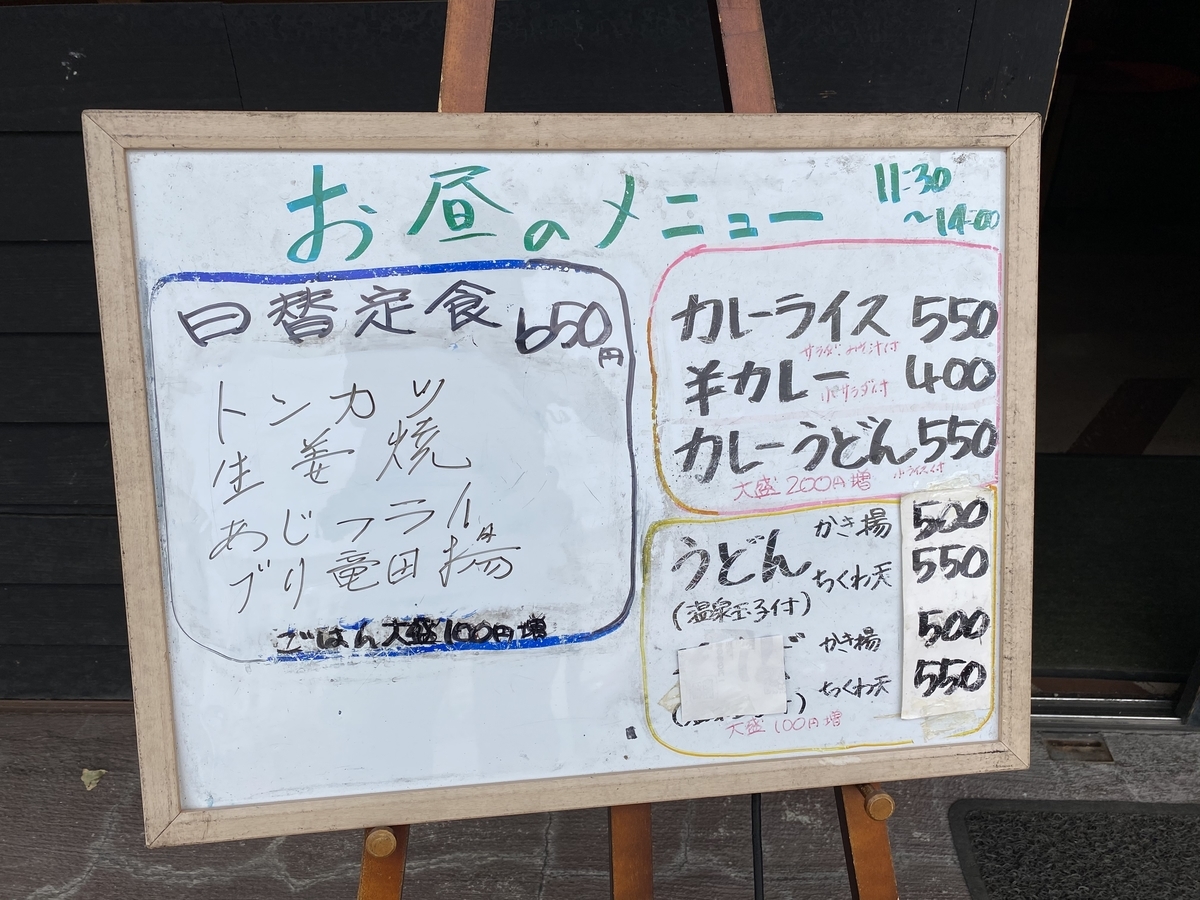 お昼のメニュー
11:30
～14:00
日替定食 650円
トンカツ
生姜焼
あじフライ
ブリ竜田揚
ごはん大盛100円増
カレーライス 550
サラダ・みそ汁付
半カレー 400
サラダ付
カレーうどん 550
小ライス付
大盛200円増
うどん かき揚 500
ちくわ天 550
(温泉玉子付)
かき揚 500
ちくわ天 550
大盛100円増